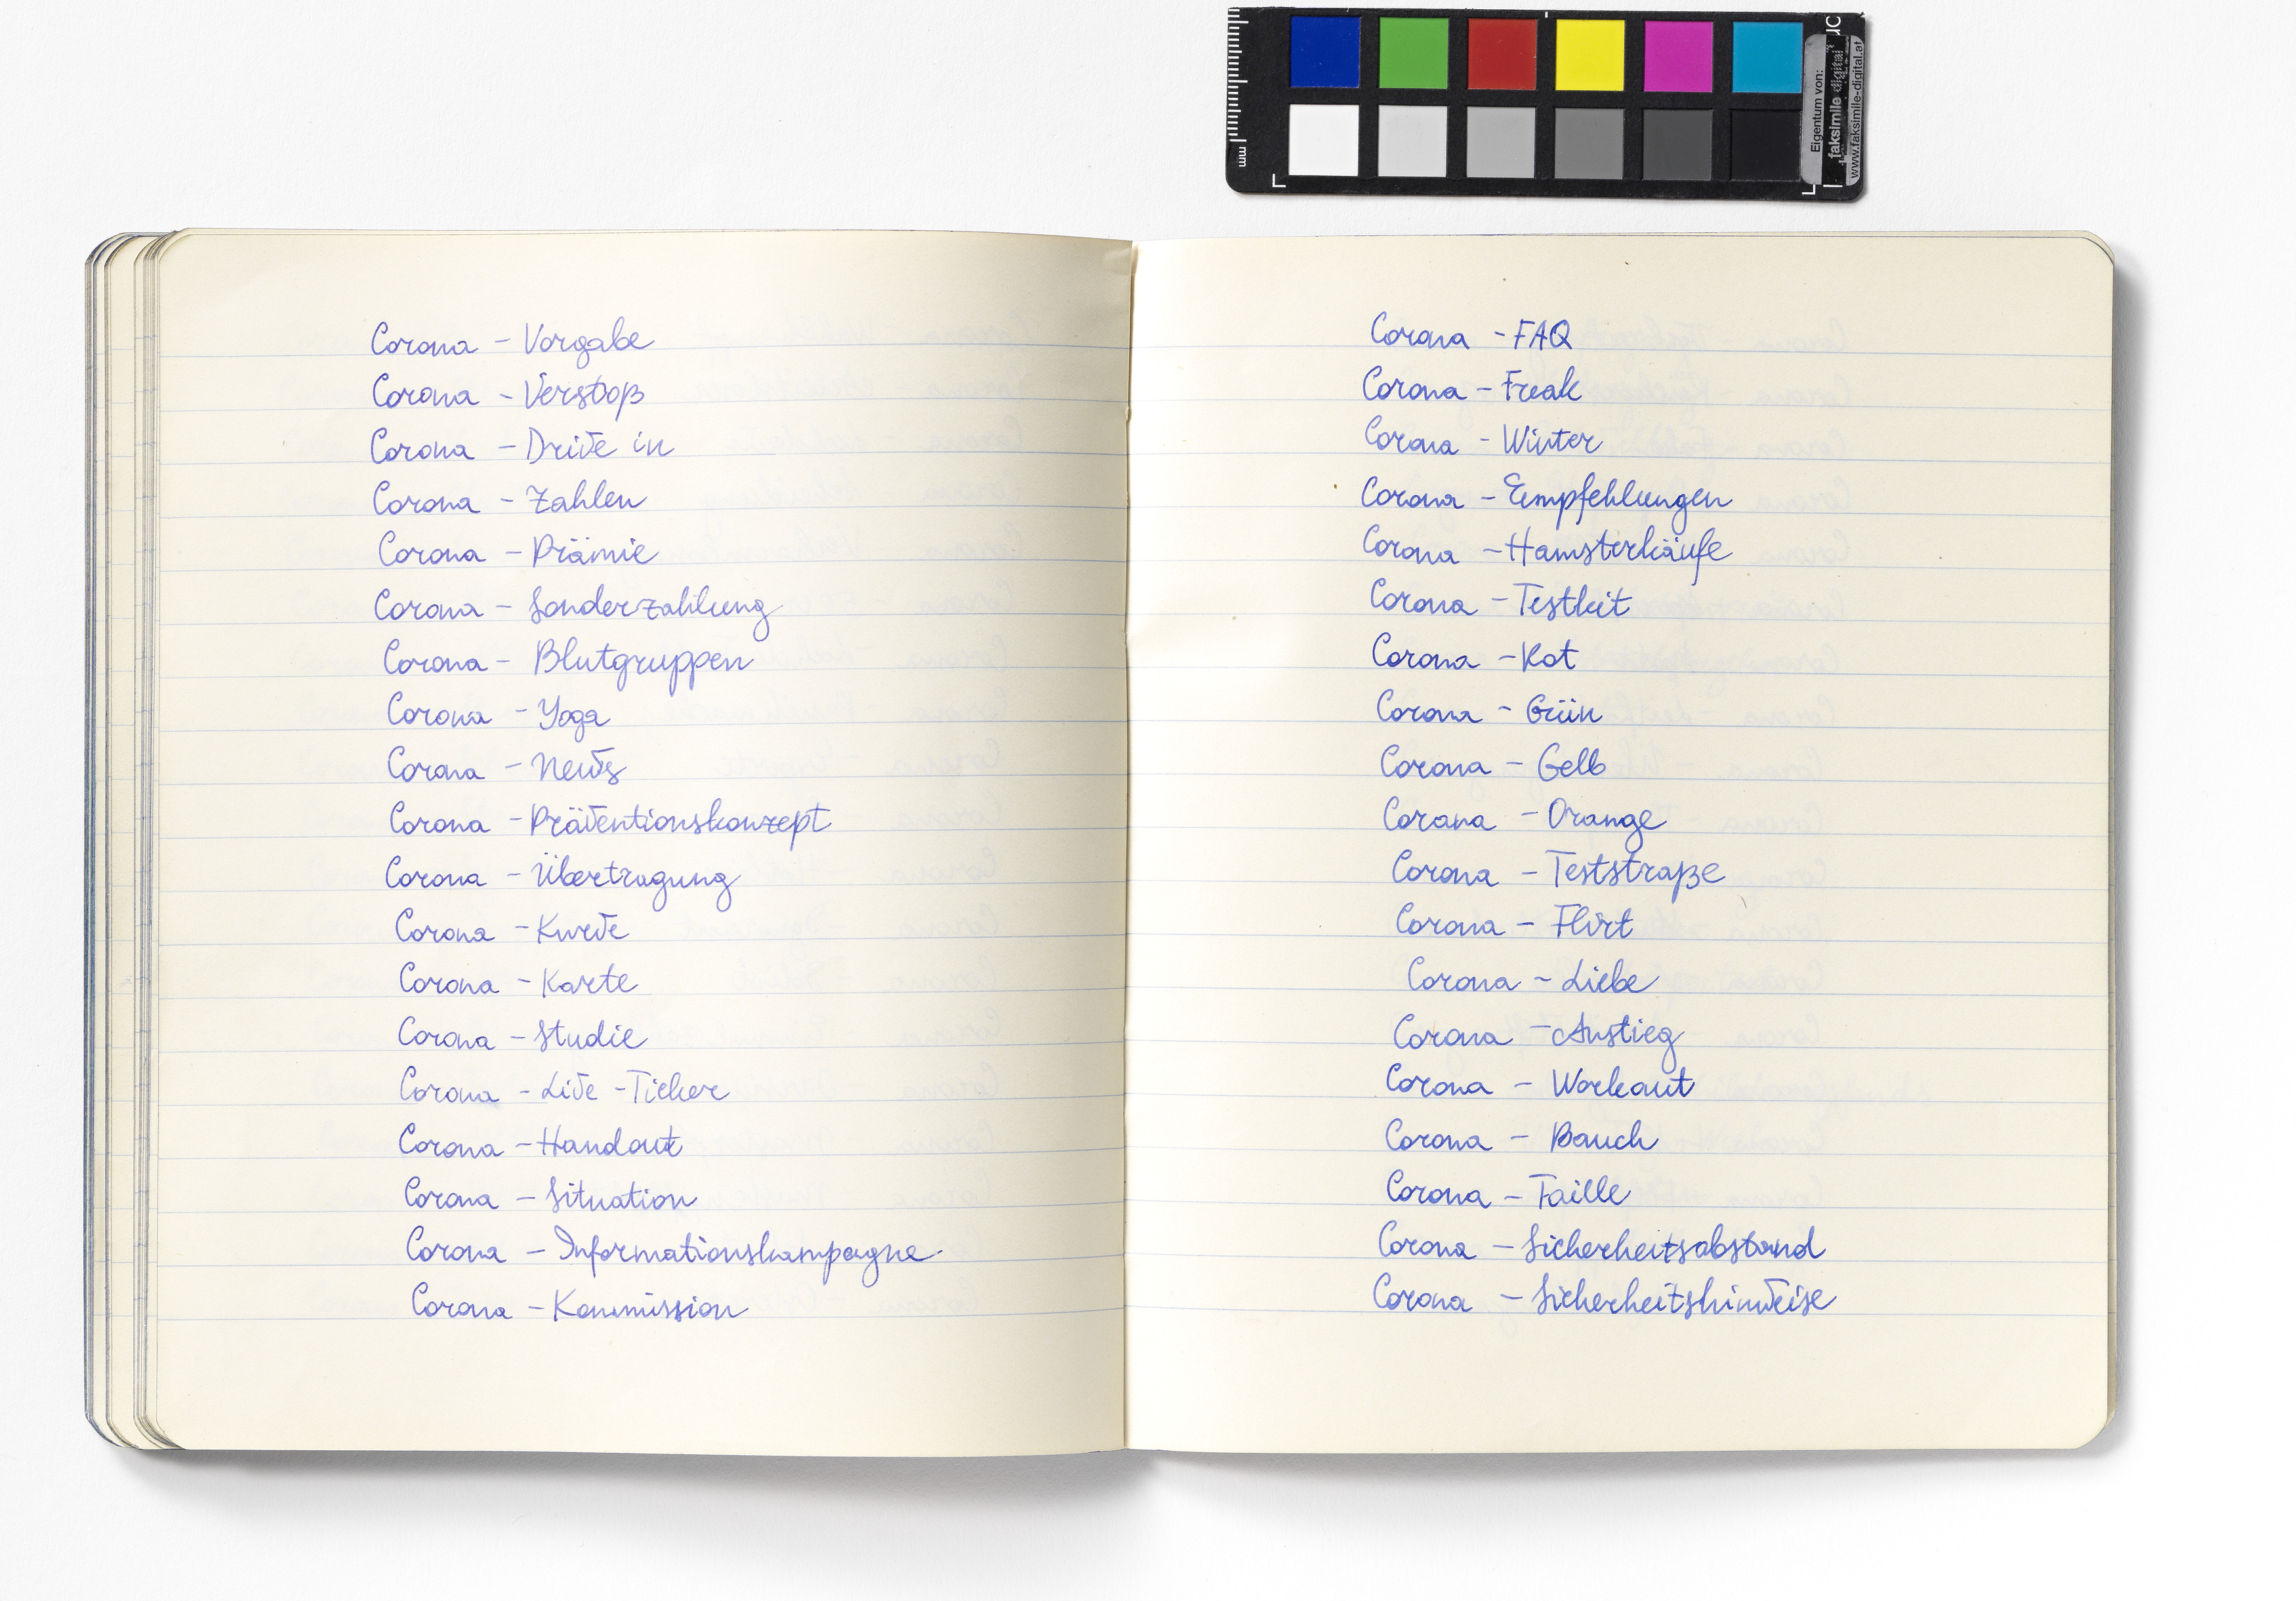 mm
Eigentum von:
faksimile digital
www.faksimile-digital.at
Corona - Vorgabe
Corona - Verstoß
Corona - Drive in
Corona - Zahlen
Corona - Prämie
Corona - Sonderzahlung
Corona - Blutgruppen
Corona - Yoga
Corona - News
Corona - Präventionskonzept
Corona - Übertragung
Corona - Kurve
Corona - Karte
Corona - Studie
Corona - Live - Ticker
Corona - Handout
Corona - Situation
Corona - Informationskampagne
Corona - Kommission
Corona - FAQ
Corona - Freak
Corona - Winter
Corona - Empfehlungen
Corona - Hamsterkäufe
Corona - Testkit
Corona - Rot
Corona - Grün
Corona - Gelb
Corona - Orange
Corona - Teststraße
Corona - Flirt
Corona - Liebe
Corona - Anstieg
Corona - Workout
Corona - Bauch
Corona - Taille
Corona - Sicherheitsabstand
Corona - Sicherheitshinweise